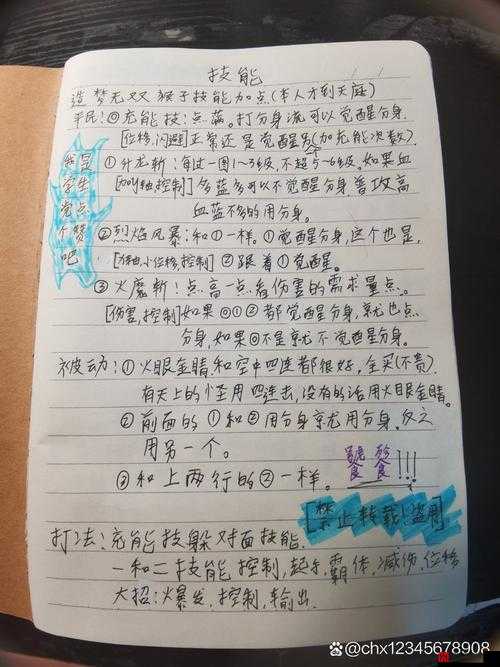 技能
造梦无双 猴子技能加点(本人才到天庭)
平民:⓪充能技:点满。打分身流可以觉醒分身.
[位移,闪避]正常还是觉醒另个(加充能次数).
①升龙斩:每过一图1~3级,不超5~6级。如果血
[加独控制]多蓝多可以不觉醒分身普攻高
血蓝不多的用分身。
②烈焰风暴:和①一样。①觉醒分身,这个也是,
小位移,控制]②跟着①觉醒。
③火魔斩:点高一点看伤害的需求量点。
[伤害,控制]如果⓪①②都觉醒分身,就也点
分身,如果⓪不是就不觉醒分身.
被动:①火眼金睛和空中四连都很好,全买(不贵).
有天上的怪用四连击,没有的话用火眼金睛。
②前面的①和②用分身就用分身.反之
用另一个。
③和上两行的②一样。
!!!
[禁止转载!盗用]
打法:充能技躲对面技能.
一和二技能控制,起手,霸体,减伤,位移
大招:爆发,控制,输出.
我是
学生
党点
个赞
吧
@chx12345678908